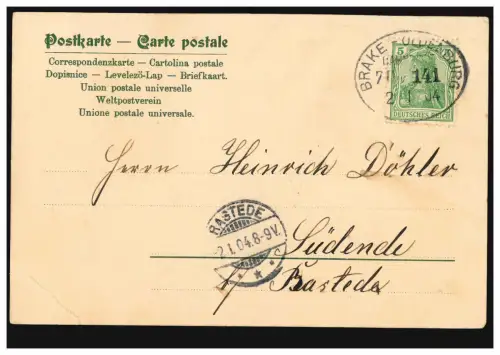 Postkarte — Carte postale
Correspondenzkarte — Cartolina postale
Dopisnice — Levelezö-Lap — Briefkaart.
Union postale universelle
Weltpostverein
Unione postale universale.
BRAKE OLDENBURG
141
04
5
DEUTSCHES REICH
Herrn Heinrich Döhler
RASTEDE
2.1.04.8-9V.
Südende
Rastede